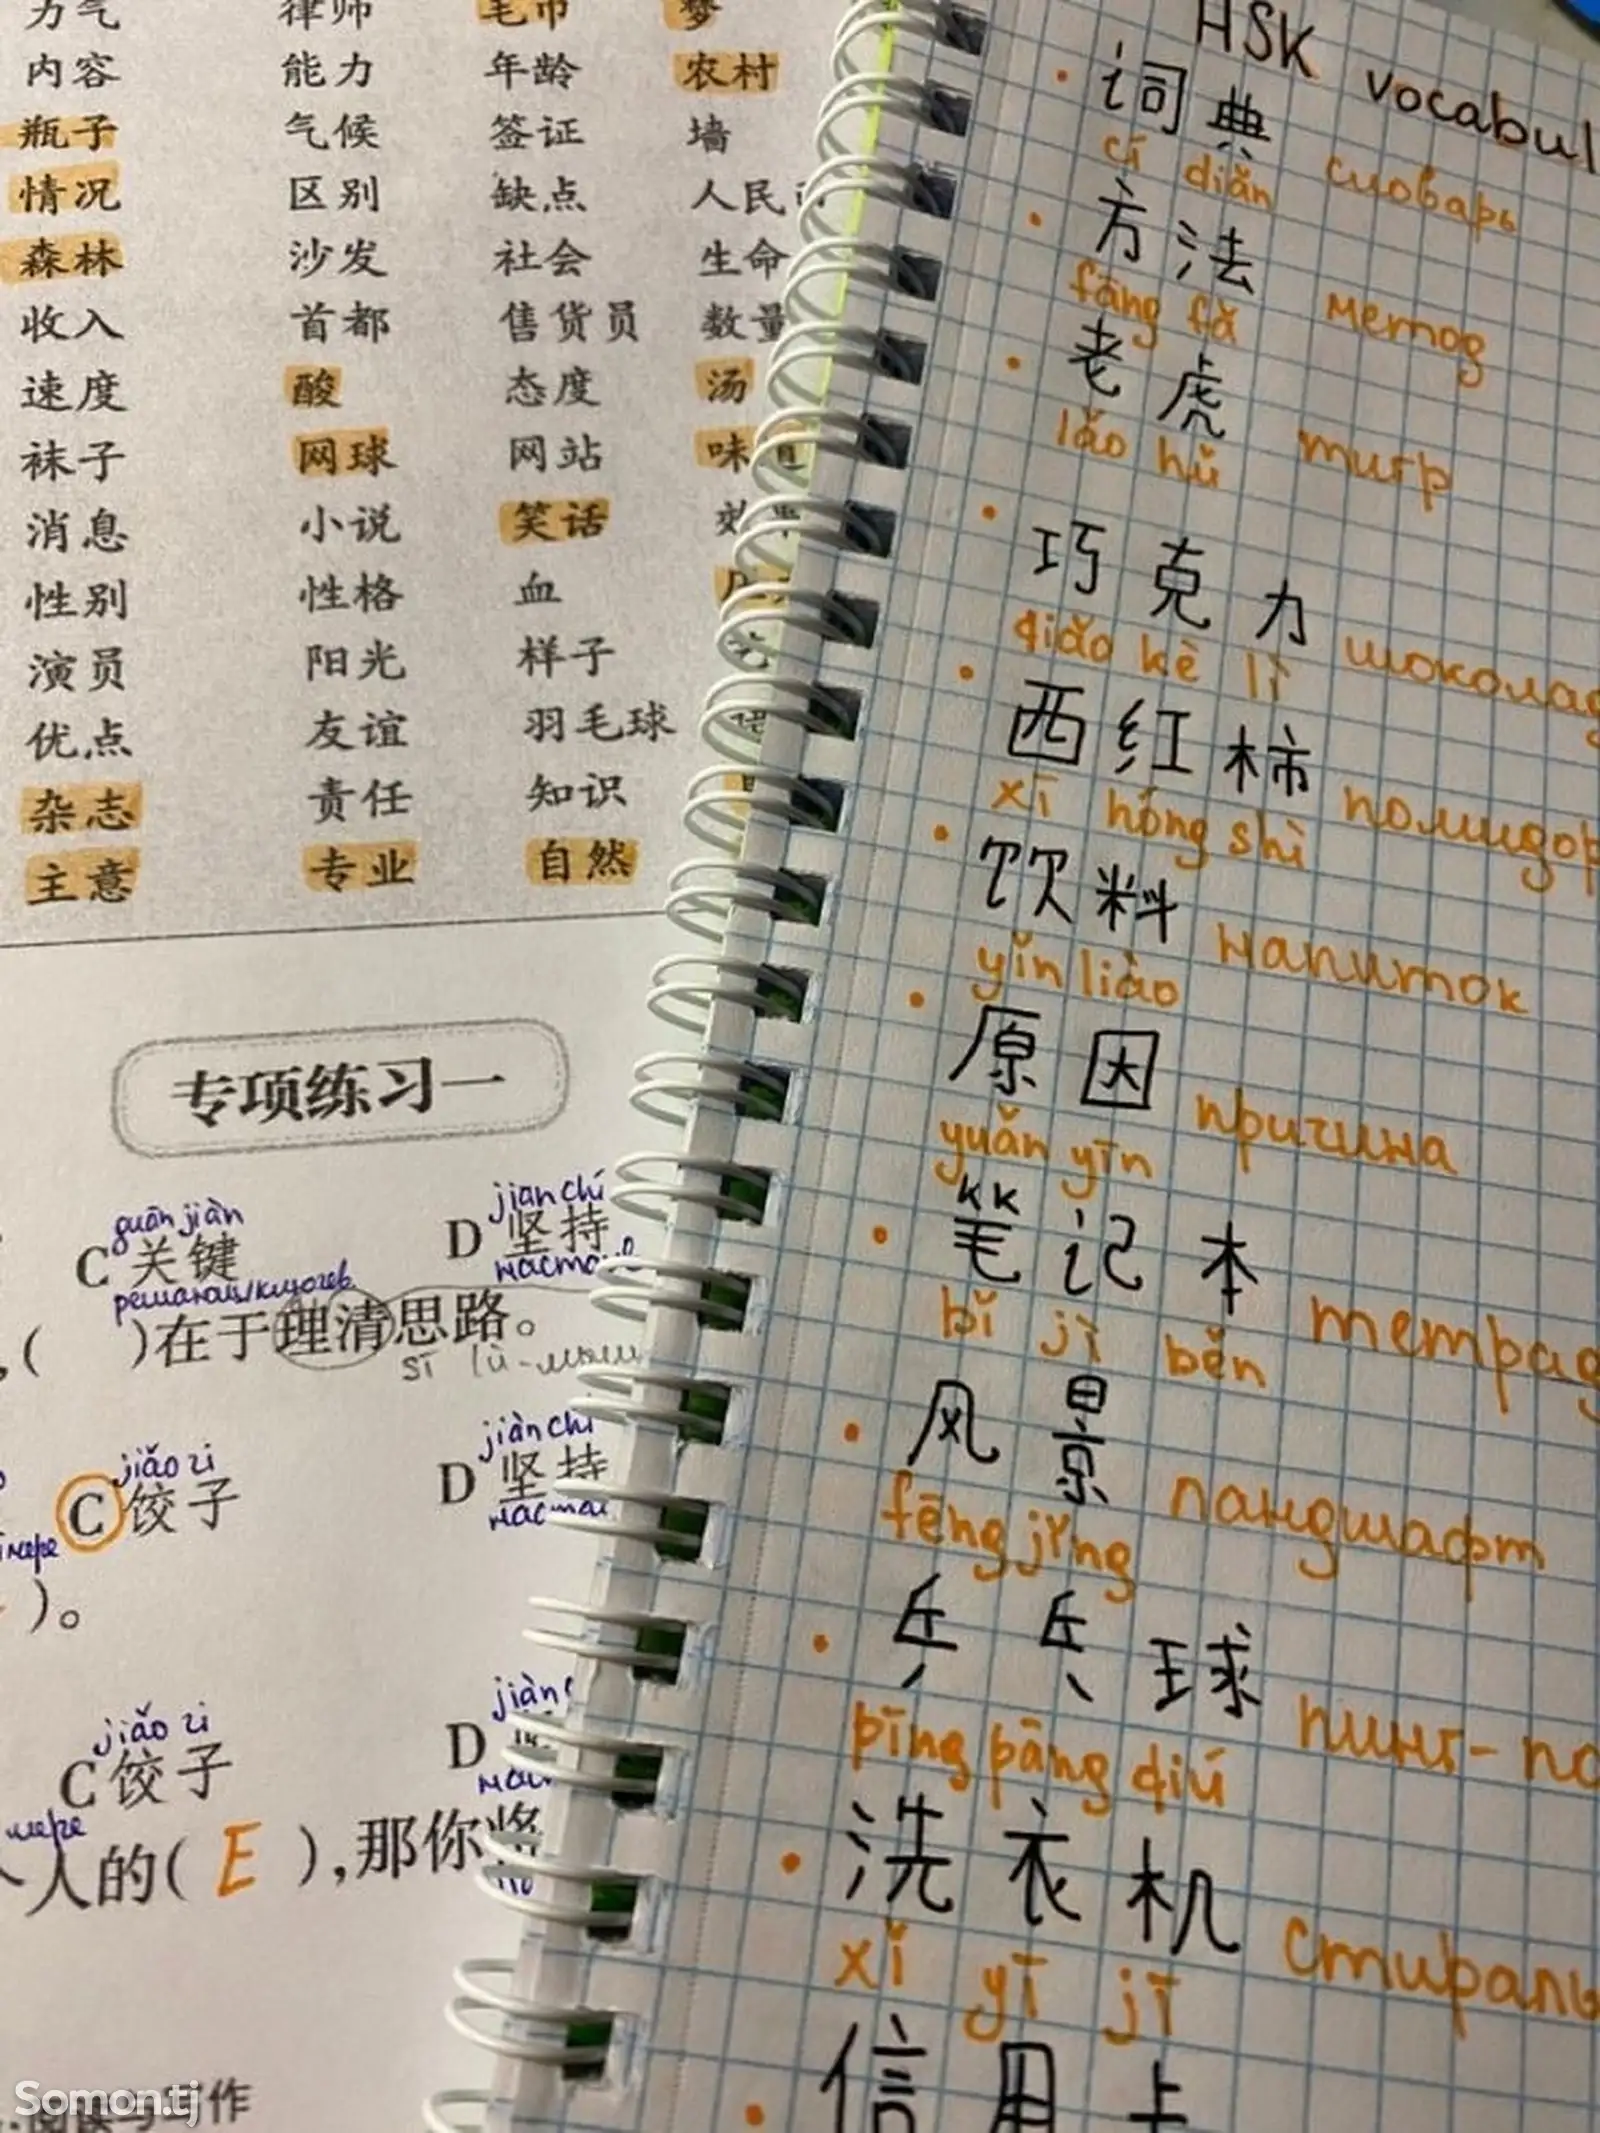 力气 律师 毛巾 梦
内容 能力 年龄 农村
瓶子 气候 签证 墙
情况 区别 缺点 人民
森林 沙发 社会 生命
收入 首都 售货员 数量
速度 酸 态度 汤
袜子 网球 网站 味道
消息 小说 笑话
性别 性格 血
演员 阳光 样子
优点 友谊 羽毛球
杂志 责任 知识
主意 专业 自然
专项练习一
guān jiàn jian chí
C 关键 D 坚持
( )在于理清思路。
sī lù
jiǎo zi jiàn chí
C 饺子 D 坚持
)。
jiǎo zi jiàn
C 饺子 D
人的( E ),那你将
写作
Somon.tj
HSK vocabul
词典
cí diǎn словарь
方法
fāng fǎ метод
老虎
lǎo hǔ тигр
巧克力
qiǎo kè lì шоколад
西红柿
xī hóng shì помидор
饮料
yǐn liào напиток
原因
yuǎn yīn причина
笔记本
bǐ jì běn тетрад
风景
fēng jǐng ландшафт
乒乓球
pīng pāng qiú пинг-по
洗衣机
xǐ yī jī стираль
信用卡